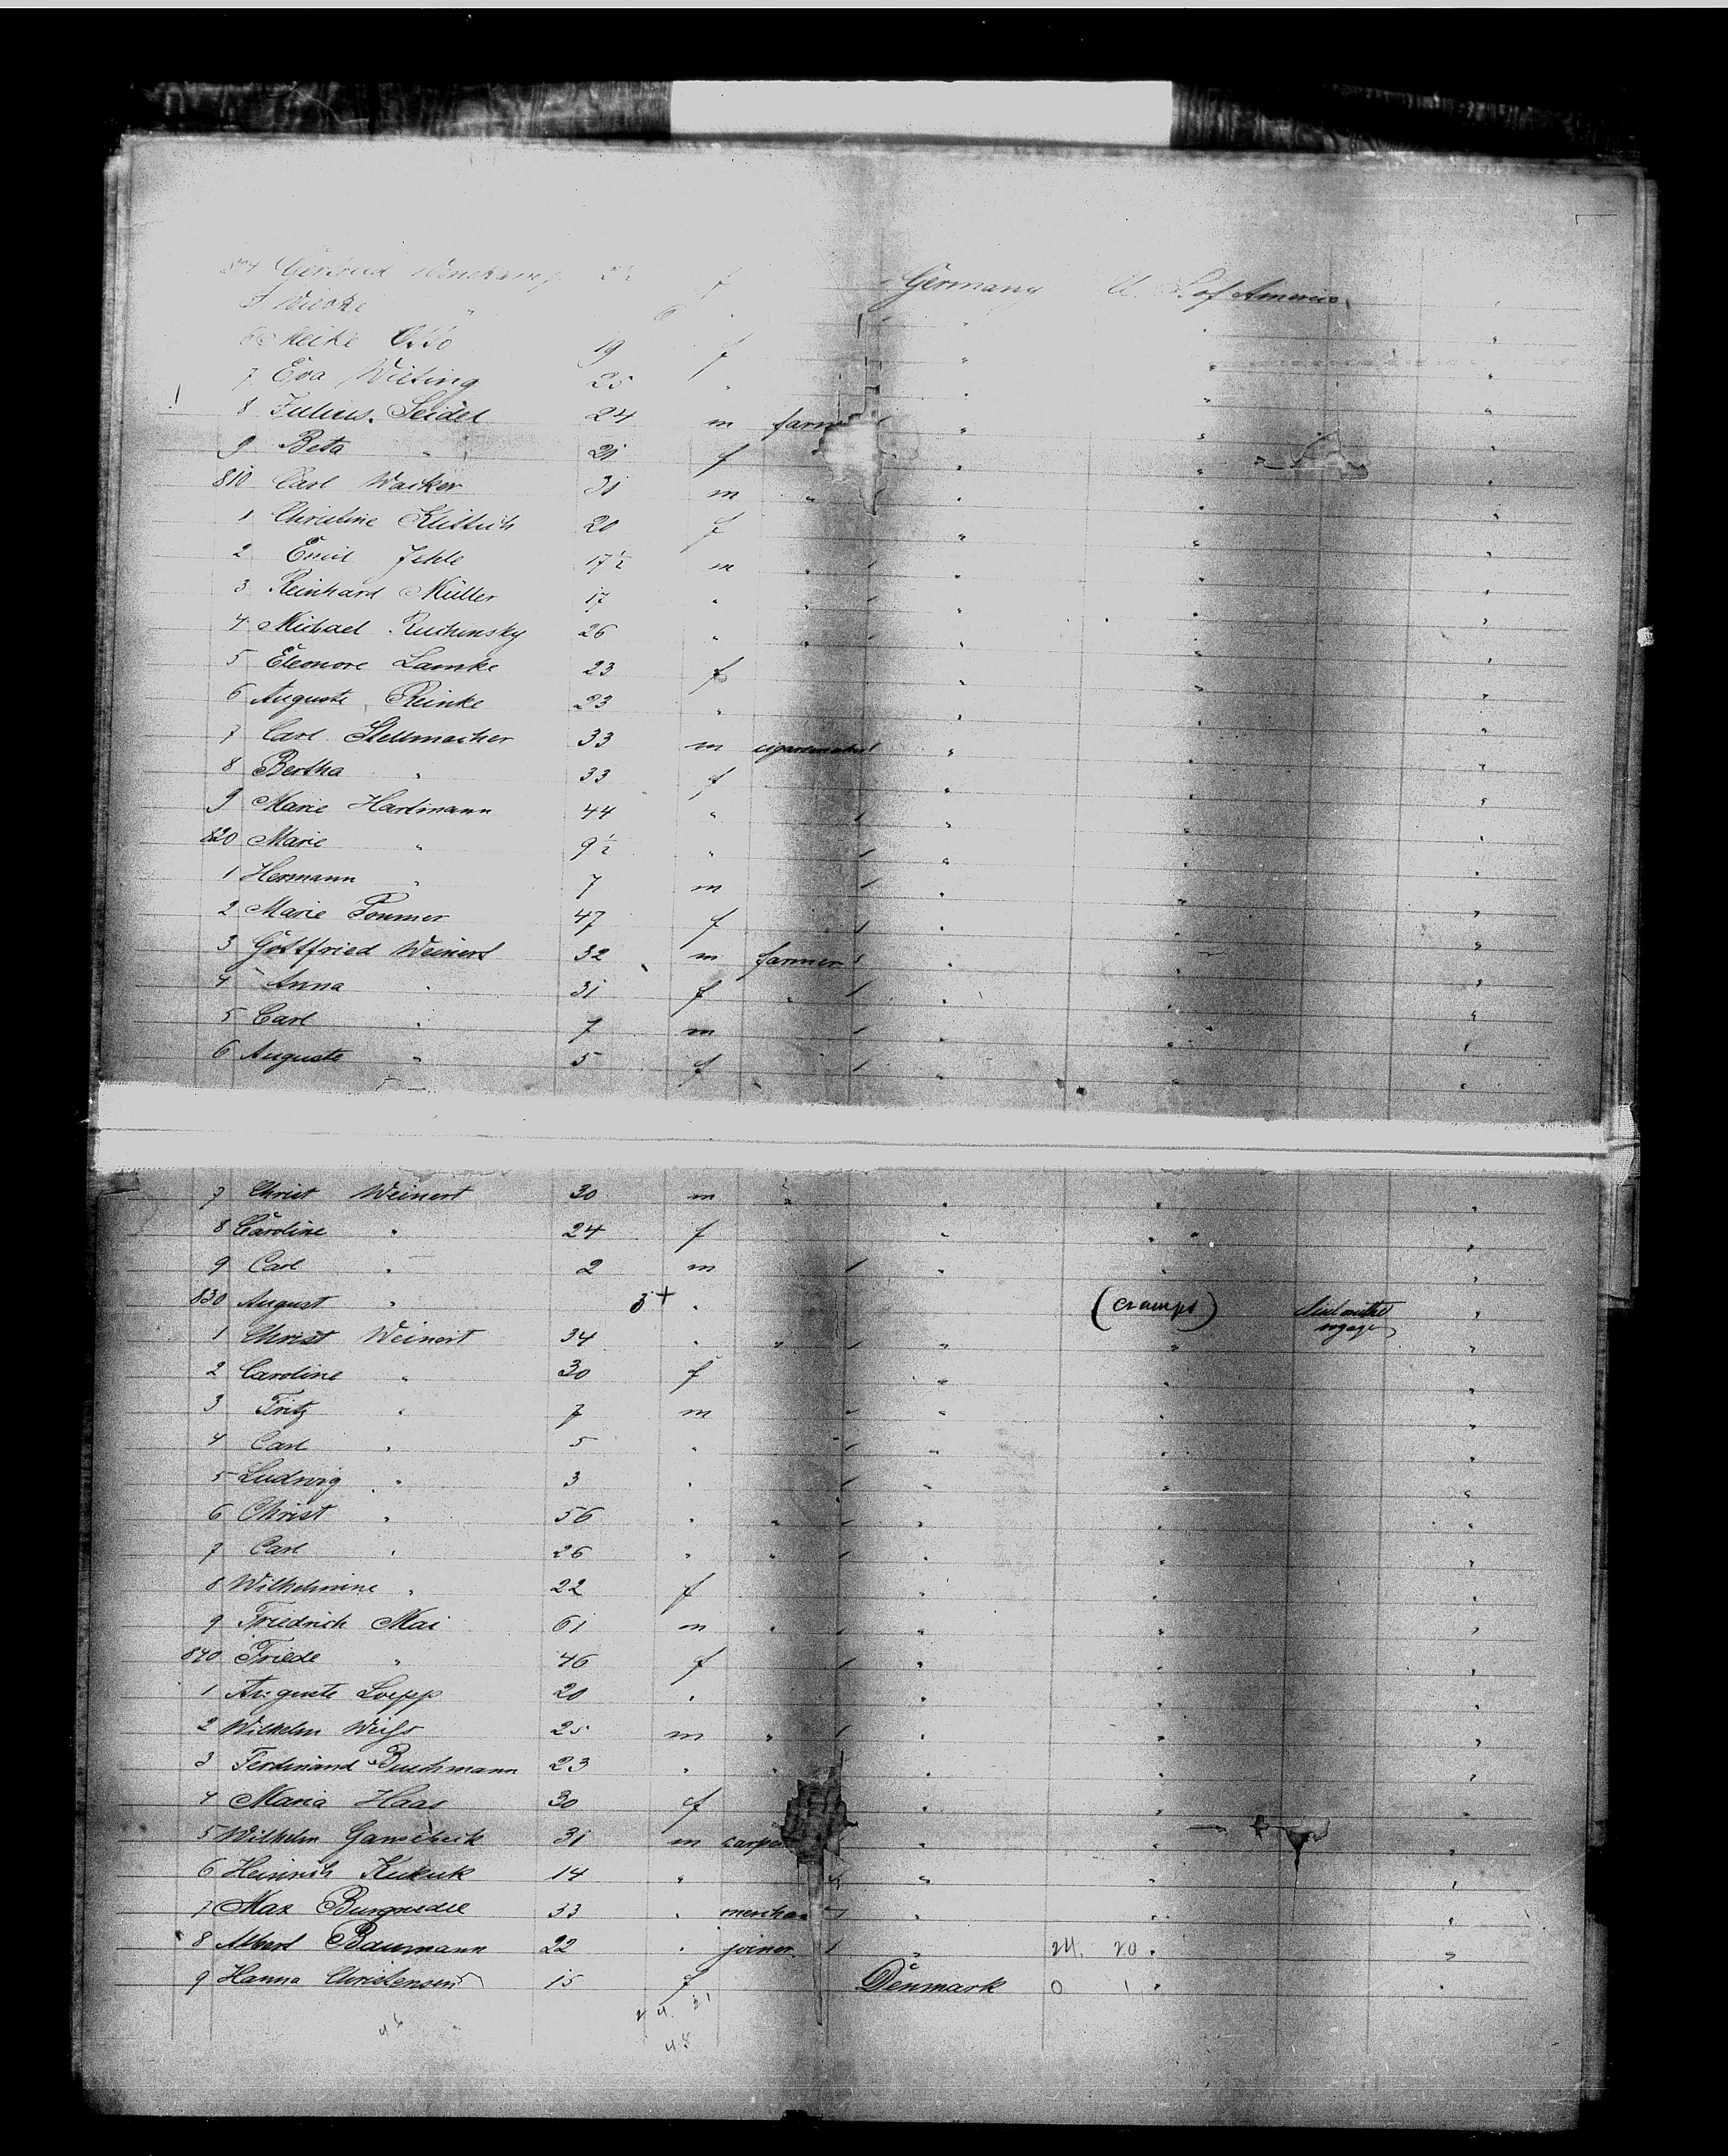 Germany U. S. of America
6 Meike Otto 19 f "
7 Eva Wieting 25 " "
8 Julius Seidel 24 m farm " "
9 Beta " 21 f " "
810 Carl Wacker 31 m " " "
1 Christine 20 f " "
2 Emil Jehle 17½ m " " "
3 Reinhard Müller 17 " " " "
4 Michael Ruchinsky 26 " " " "
5 Eleonore Lamke 23 f " "
6 Auguste Reinke 23 " " "
7 Carl Stellmacher 33 m cigarmaker " "
8 Bertha " 33 f " "
9 Marie Hartmann 44 " " "
820 Marie " 9½ " " "
1 Hermann " 7 m " "
2 Marie 47 f " "
3 Gottfried Weinert 32 m farmer " "
4 Anna " 31 f " " "
5 Carl " 7 m " "
6 Auguste " 5 f " "
7 Christ Weinert 30 m " " "
8 Caroline " 24 f " "
9 Carl " 2 m " "
830 August " 3+ " (cramps) died on the voyage "
1 Christ Weinert 34 " " " "
2 Caroline " 30 f " "
3 Fritz " 7 m " "
4 Carl " 5 " " "
5 Ludwig " 3 " " "
6 Christ " 56 " " " "
7 Carl " 26 " " " "
8 Wilhelmine " 22 f " "
9 Friedrich Mai 61 m " " "
840 Friede " 46 f " "
1 Auguste Loepp 20 " " "
2 Wilhelm Weiß 25 m " " "
3 Ferdinand Buchmann 23 " " " "
4 Maria Haas 30 f " "
5 Wilhelm 31 m carpen " "
6 Heinrich Kukuk 14 " " "
7 Max 33 " mercha " "
8 Albert Baumann 22 " joiner " 24. 20 "
9 Hanna Christensen 15 f Denmark 0 1 "
24. 21
46
45